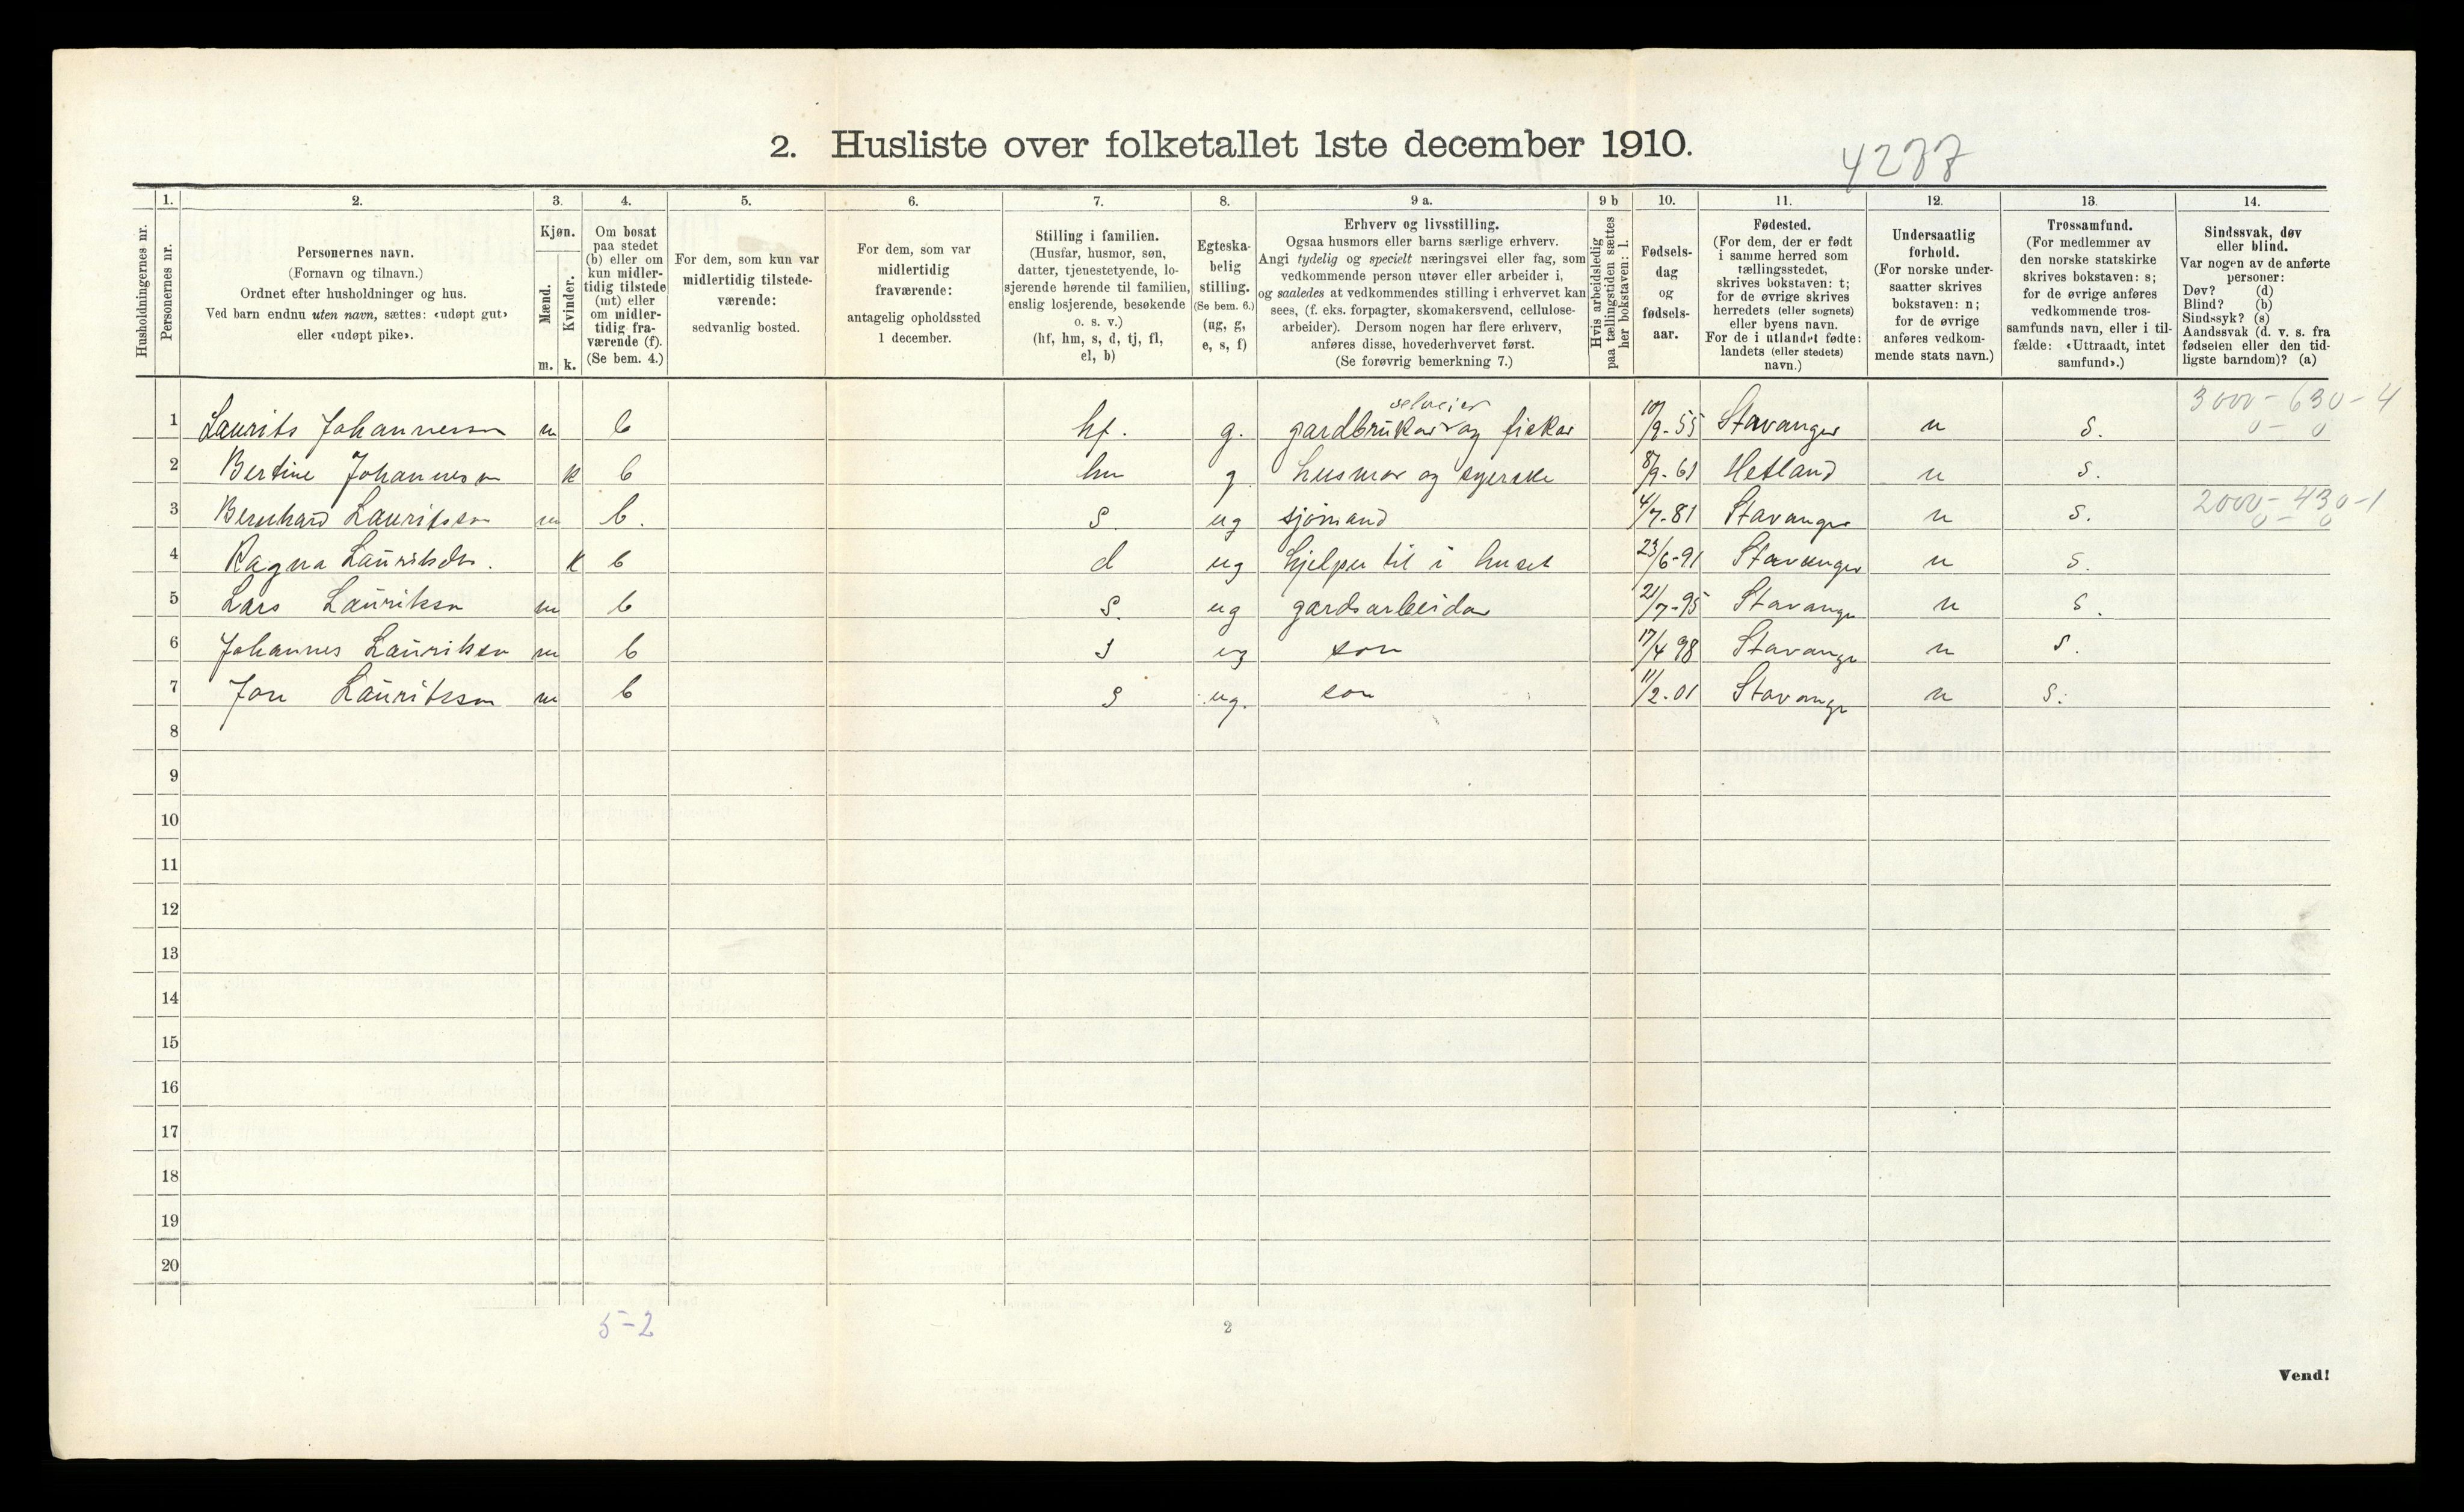 2. Husliste over folketallet 1ste december 1910.
4277
Husholdningernes nr.
1. Personernes nr.
2. Personernes navn. (Fornavn og tilnavn.) Ordnet efter husholdninger og hus. Ved barn endnu uten navn, sættes: «udøpt gut» eller «udøpt pike».
3. Kjøn. Mænd. m. Kvinder. k.
4. Om bosat paa stedet (b) eller om kun midler-tidig tilstede (mt) eller om midler-tidig fra-værende (f). (Se bem. 4.)
5. For dem, som kun var midlertidig tilstede-værende: sedvanlig bosted.
6. For dem, som var midlertidig fraværende: antagelig opholdssted 1 december.
7. Stilling i familien. (Husfar, husmor, søn, datter, tjenestetyende, lo-sjerende hørende til familien, enslig losjerende, besøkende o. s. v.) (hf, hm, s, d, tj, fl, el, b)
8. Egteska-belig stilling. (Se bem. 6.) (ug, g, e, s, f)
9 a. Erhverv og livsstilling. Ogsaa husmors eller barns særlige erhverv. Angi tydelig og specielt næringsvei eller fag, som vedkommende person utøver eller arbeider i, og saaledes at vedkommendes stilling i erhvervet kan sees, (f. eks. forpagter, skomakersvend, cellulose-arbeider). Dersom nogen har flere erhverv, anføres disse, hovederhvervet først. (Se forøvrig bemerkning 7.)
9 b Hvis arbeidsledig paa tællingstiden sættes her bokstaven: l.
10. Fødsels-dag og fødsels-aar.
11. Fødested. (For dem, der er født i samme herred som tællingsstedet, skrives bokstaven: t; for de øvrige skrives herredets (eller sognets) eller byens navn. For de i utlandet fødte: landets (eller stedets) navn.)
12. Undersaatlig forhold. (For norske under-saatter skrives bokstaven: n; for de øvrige anføres vedkom-mende stats navn.)
13. Trossamfund. (For medlemmer av den norske statskirke skrives bokstaven: s; for de øvrige anføres vedkommende tros-samfunds navn, eller i til-fælde: «Uttraadt, intet samfund».)
14. Sindssvak, døv eller blind. Var nogen av de anførte personer: Døv? (d) Blind? (b) Sindssyk? (s) Aandssvak (d. v. s. fra fødselen eller den tid-ligste barndom)? (a)
selveier 3000-630-4
1 Laurits Johannesson m b hf. g. gardbrukar og fiskar 10/9-55 Stavanger n s. 0-0
2 Bertine Johanneson k b hm g husmor og syerske 8/9-61 Hetland n s.
3 Bernhard Lauritsson m b. s. ug sjømand 4/7-81 Stavanger n s. 2000-430-1 0-0
4 Ragna Lauritsdtr. k b d ug hjelper til i huset 23/6-91 Stavanger n s.
5 Lars Lauritsson m b s. ug gardsarbeidar 21/7-95 Stavanger n s.
6 Johannes Lauritson m b s ug son 17/4 98 Stavanger n s.
7 Jon Lauritsson m b s ug. son 11/2-01 Stavanger n s.
8
9
10
11
12
13
14
15
16
17
18
19
20
5-2
2
Vend!